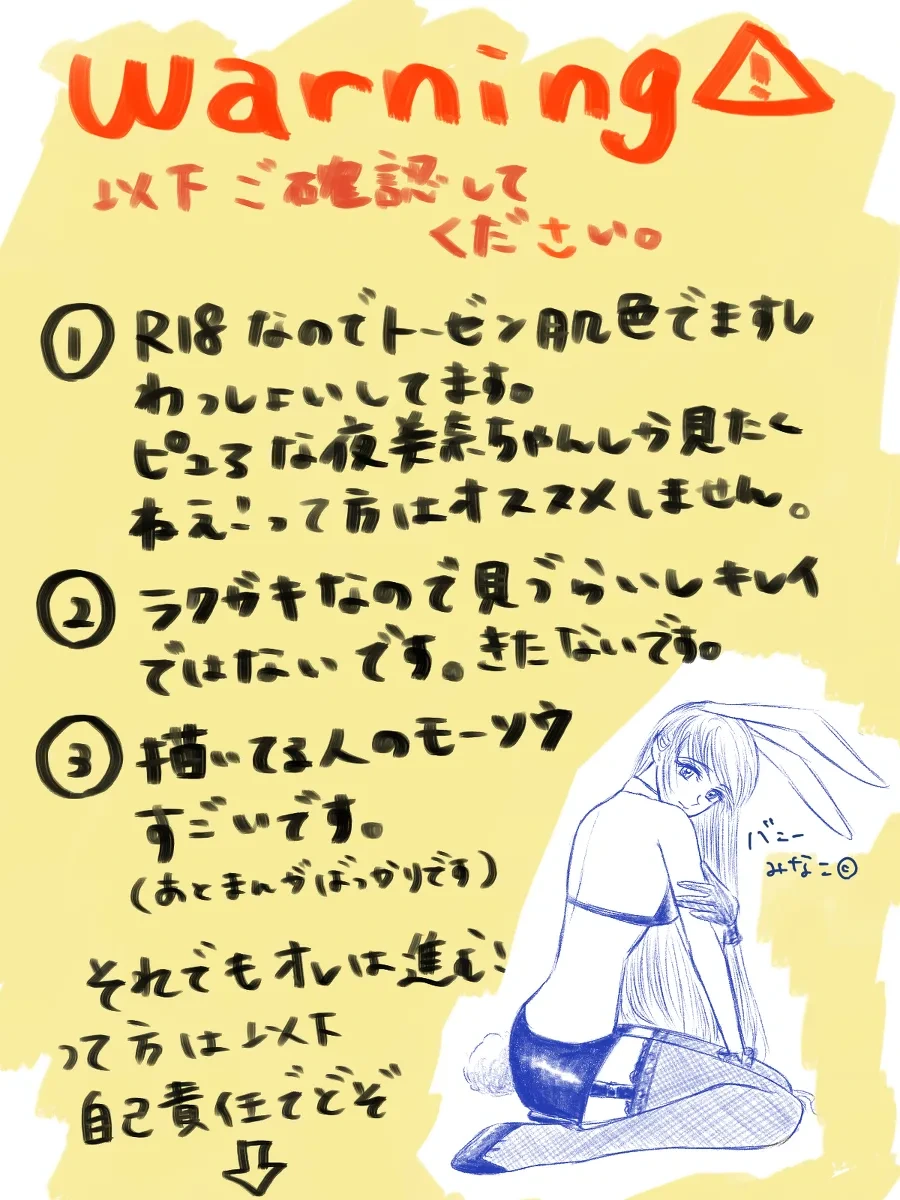 Warning
以下ご確認して
ください。
① R18なのでトーゼン肌色でますし
わっしょいしてます。
ピュろな夜美奈ちゃんしか見たく
ねえ!って方はオススメしません。
② ラクガキなので見づらいしキレイ
ではないです。きたないです。
③ 描いてる人のモーソウ
すごいです。
(あとまんがばっかりです)
それでもオレは進む!
って方は以下
自己責任でどぞ
バニー
みなこ©